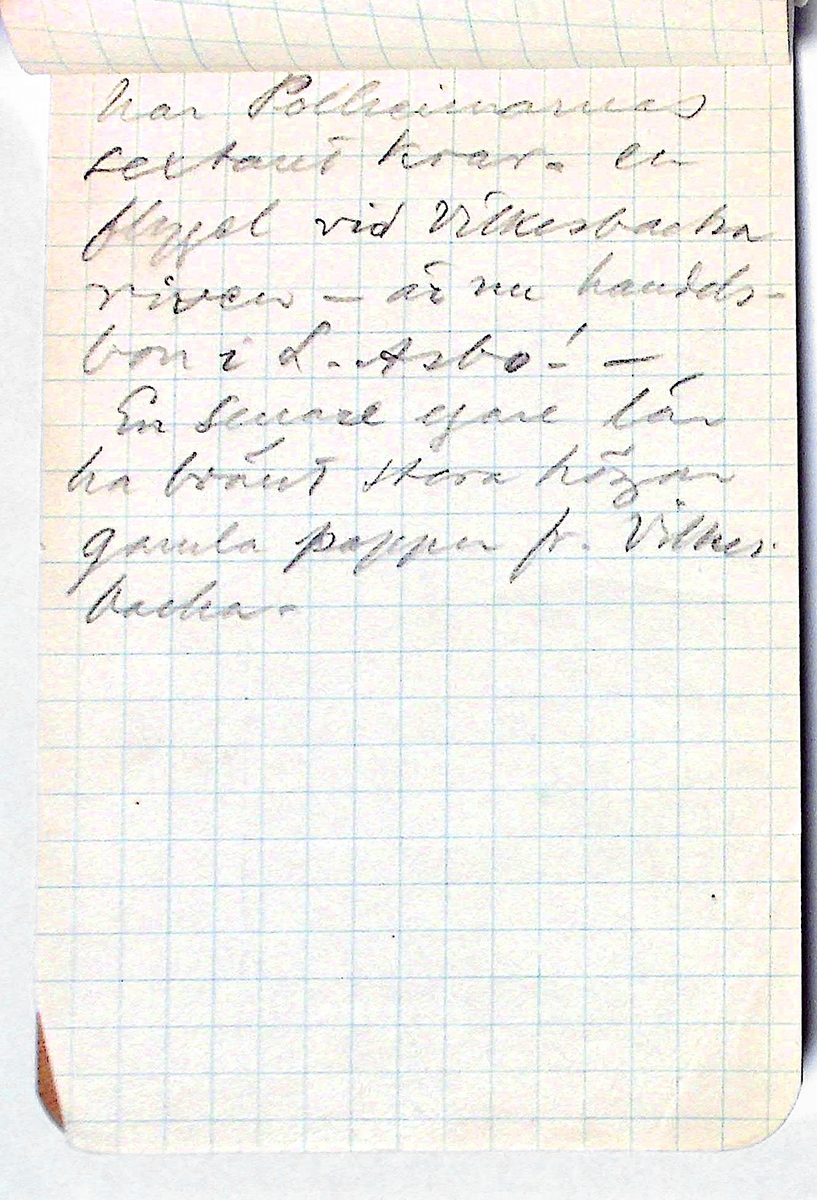 har Polheimarnas
sextant kvar. en
flygel vid Vilkesbacka
riven – är nu handels-
bon i L. Asbo! –
En senare egare lär
ha bränt stora högar
gamla papper fr. Vilkes-
backa.